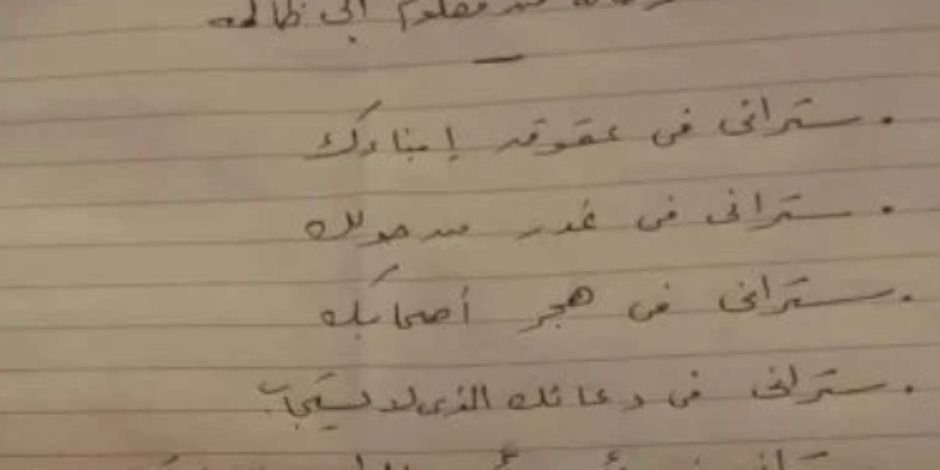 من مظلوم إلى ظالمه
. سترانى فى عقوق إبناءك
. سترانى فى غدر من حولك
. سترانى فى هجر أصحابك
. سترانى فى دعائك الذى لا يستجاب